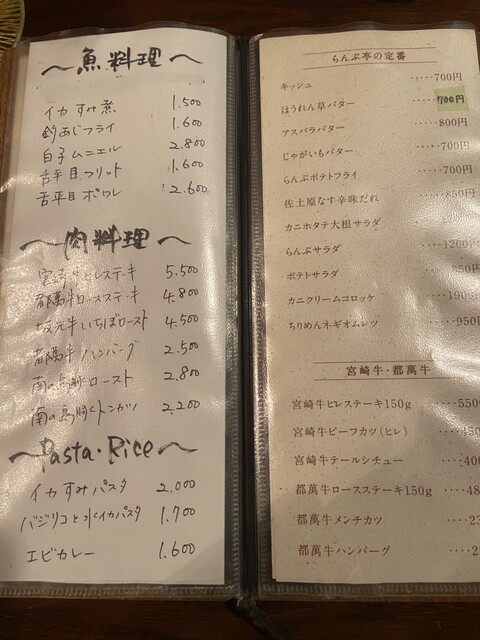 〜魚料理〜
イカすみ煮 1.500
釣あじフライ 1.600
白子ムニエル 2.800
舌平目フリット 1.600
舌平目ポワレ 2.600
〜肉料理〜
宮崎牛ヒレステーキ 5.500
都萬牛ロースステーキ 4.800
坂元牛いちぼロースト 4.500
都萬牛ハンバーグ 2.500
南の島豚ロースト 2.800
南の島豚トンカツ 2.200
〜Pasta・Rice〜
イカすみパスタ 2.000
バジリコと水イカパスタ 1.700
エビカレー 1.600
らんぷ亭の定番
キッシュ ‥‥‥700円
ほうれん草バター ‥‥‥700円
アスパラバター ‥‥‥800円
じゃがいもバター ‥‥‥700円
らんぷポテトフライ ‥‥‥700円
佐土原なす辛味だれ ‥‥‥850円
カニホタテ大根サラダ
らんぷサラダ ‥‥1200
ポテトサラダ 850
カニクリームコロッケ
ちりめんネギオムレツ ‥‥‥950
宮崎牛・都萬牛
宮崎牛ヒレステーキ150g ‥‥550
宮崎牛ビーフカツ(ヒレ)
宮崎牛テールシチュー ‥‥400
都萬牛ロースステーキ150g ‥‥48
都萬牛メンチカツ ‥‥23
都萬牛ハンバーグ ‥‥2